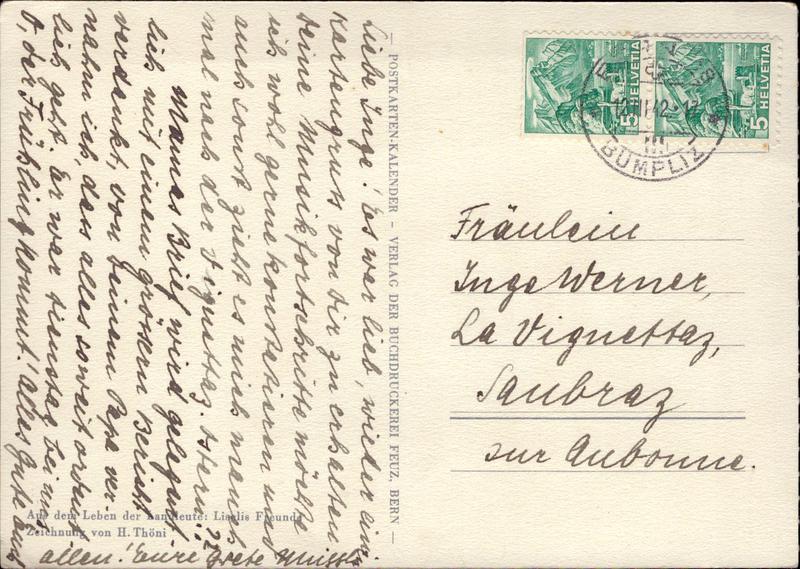 Liebe Inge! Es war lieb, wieder ein
Kartengruss von Dir zu erhalten
Deine Musikfortschritte möchte
ich wohl gerne konstatieren und
auch sonst zieht es mich manch
mal nach der Vignettaz. Ostern??
Mamas Brief wird gelegent
lich mit einem grössern Bericht
verdankt, von Deinem Papa ver-
nahm ich, dass alles soweit ordent
lich geht. Er war Dienstag bei uns
O, der Frühling kommt! Alles Gute Euch
allen! Eure Grete
Aus dem Leben der Landleute: Liselis Freunde
Zeichnung von H. Thöni
— POSTKARTEN-KALENDER – VERLAG DER BUCHDRUCKEREI FEUZ, BERN —
HELVETIA
5
HELVETIA
5
BÜMPLIZ
Fräulein
Inge Werner,
La Vignettaz,
Saubraz
sur Aubonne.